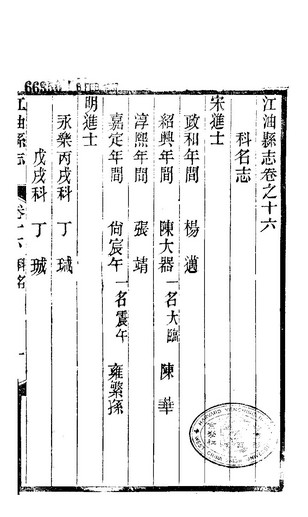 江油縣志卷之十六
科名志
宋進士
政和年間 楊邁
紹興年間 陳大器一名大臨 陳華
淳熙年間 張靖
嘉定年間 尙宸午一名震午 雍繁孫
明進士
永樂丙戌科 丁瑊
戊戌科 丁珹
江油縣志 卷十六 科名 一